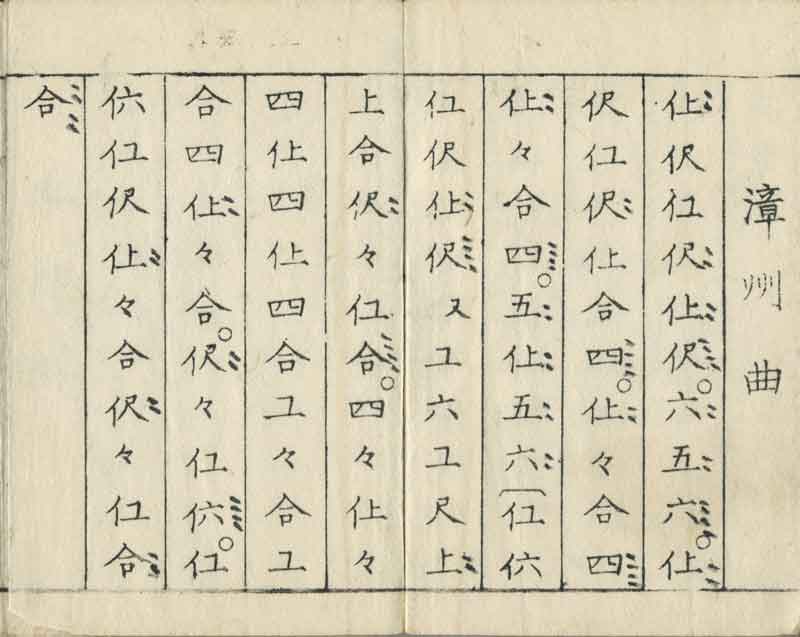 漳州曲
仩伬仜伬仩伬○六五六○仩
伬仜伬仩合四○仩々合四
仩々合四○五仩五六仜𠆾
仜伬仩伬又工六工尺上
上合伬々仜合○四々仩々
四仩四仩四合工々合工
合四仩々合○伬々仜𠆾○仜
𠆾仜伬仩々合伬々仜合
合